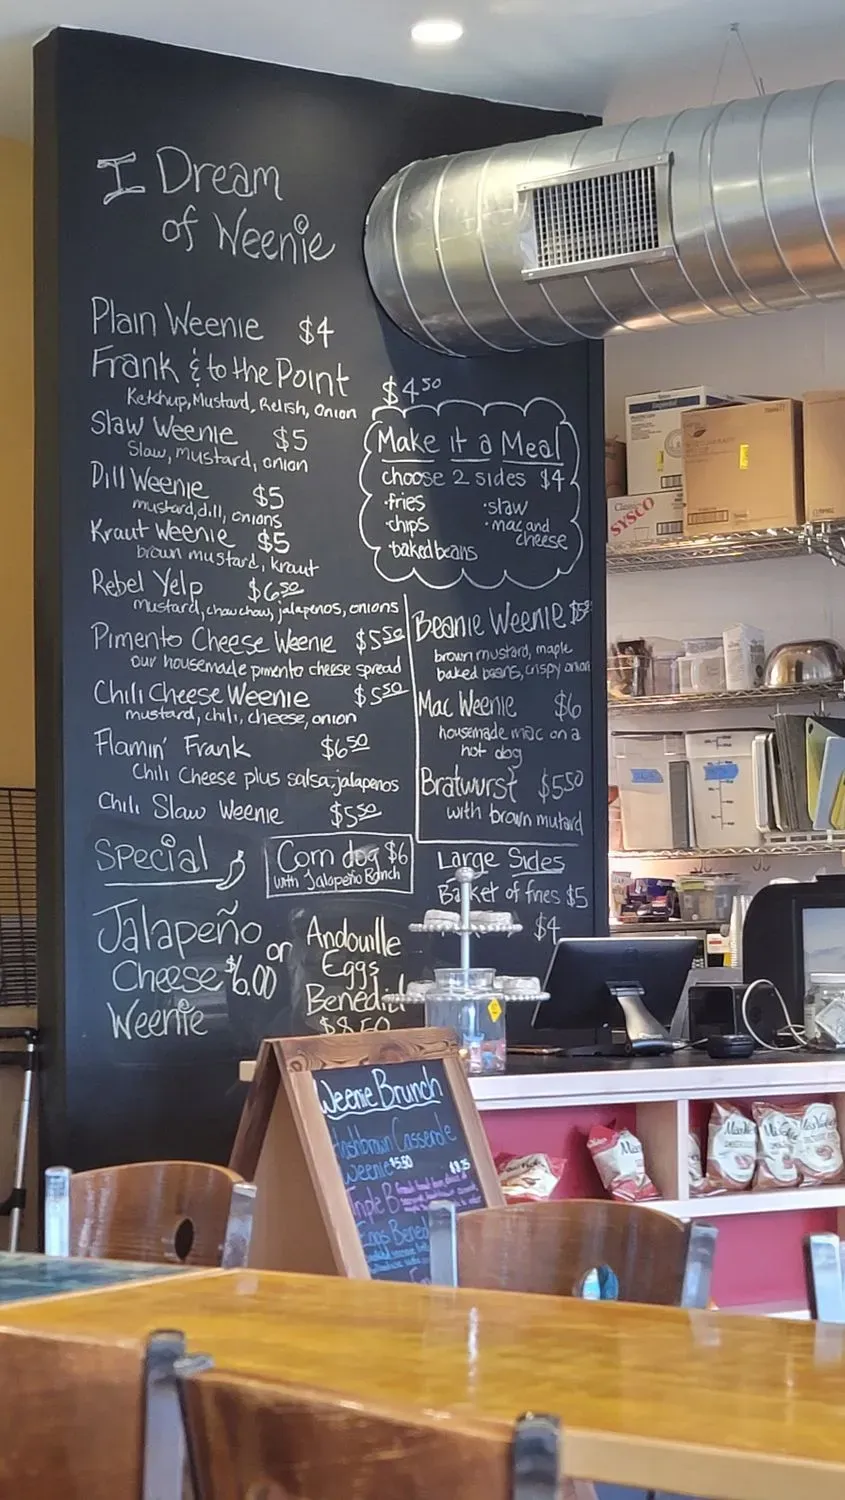 I Dream
of Weenie
Plain Weenie $4
Frank & to the Point $4.50
Ketchup, Mustard, Relish, Onion
Slaw Weenie $5
Slaw, mustard, onion
Dill Weenie $5
mustard, dill, onions
Kraut Weenie $5
brown mustard, kraut
Rebel Yelp $6.50
mustard, chowchow, jalapenos, onions
Pimento Cheese Weenie $5.50
our housemade pimento cheese spread
Chili Cheese Weenie $5.50
mustard, chili, cheese, onion
Flamin' Frank $6.50
Chili Cheese plus salsa, jalapenos
Chili Slaw Weenie $5.50
Make it a Meal
choose 2 sides $4
·fries ·slaw
·chips ·mac and
cheese
·baked beans
Beanie Weenie
brown mustard, maple
baked beans, crispy onion
Mac Weenie $6
housemade mac on a
hot dog
Bratwurst $5.50
with brown mutard
Large Sides
Basket of fries $5
$4
Special
Corn dog $6
with Jalapeño Ranch
Jalapeño
Cheese $6.00
Weenie
or
Andouille
Eggs
Benedict
$8.50
Weenie Brunch
Hashbrown Casserole
Weenie $5.50
Triple B
Eggs Bened
SYSCO